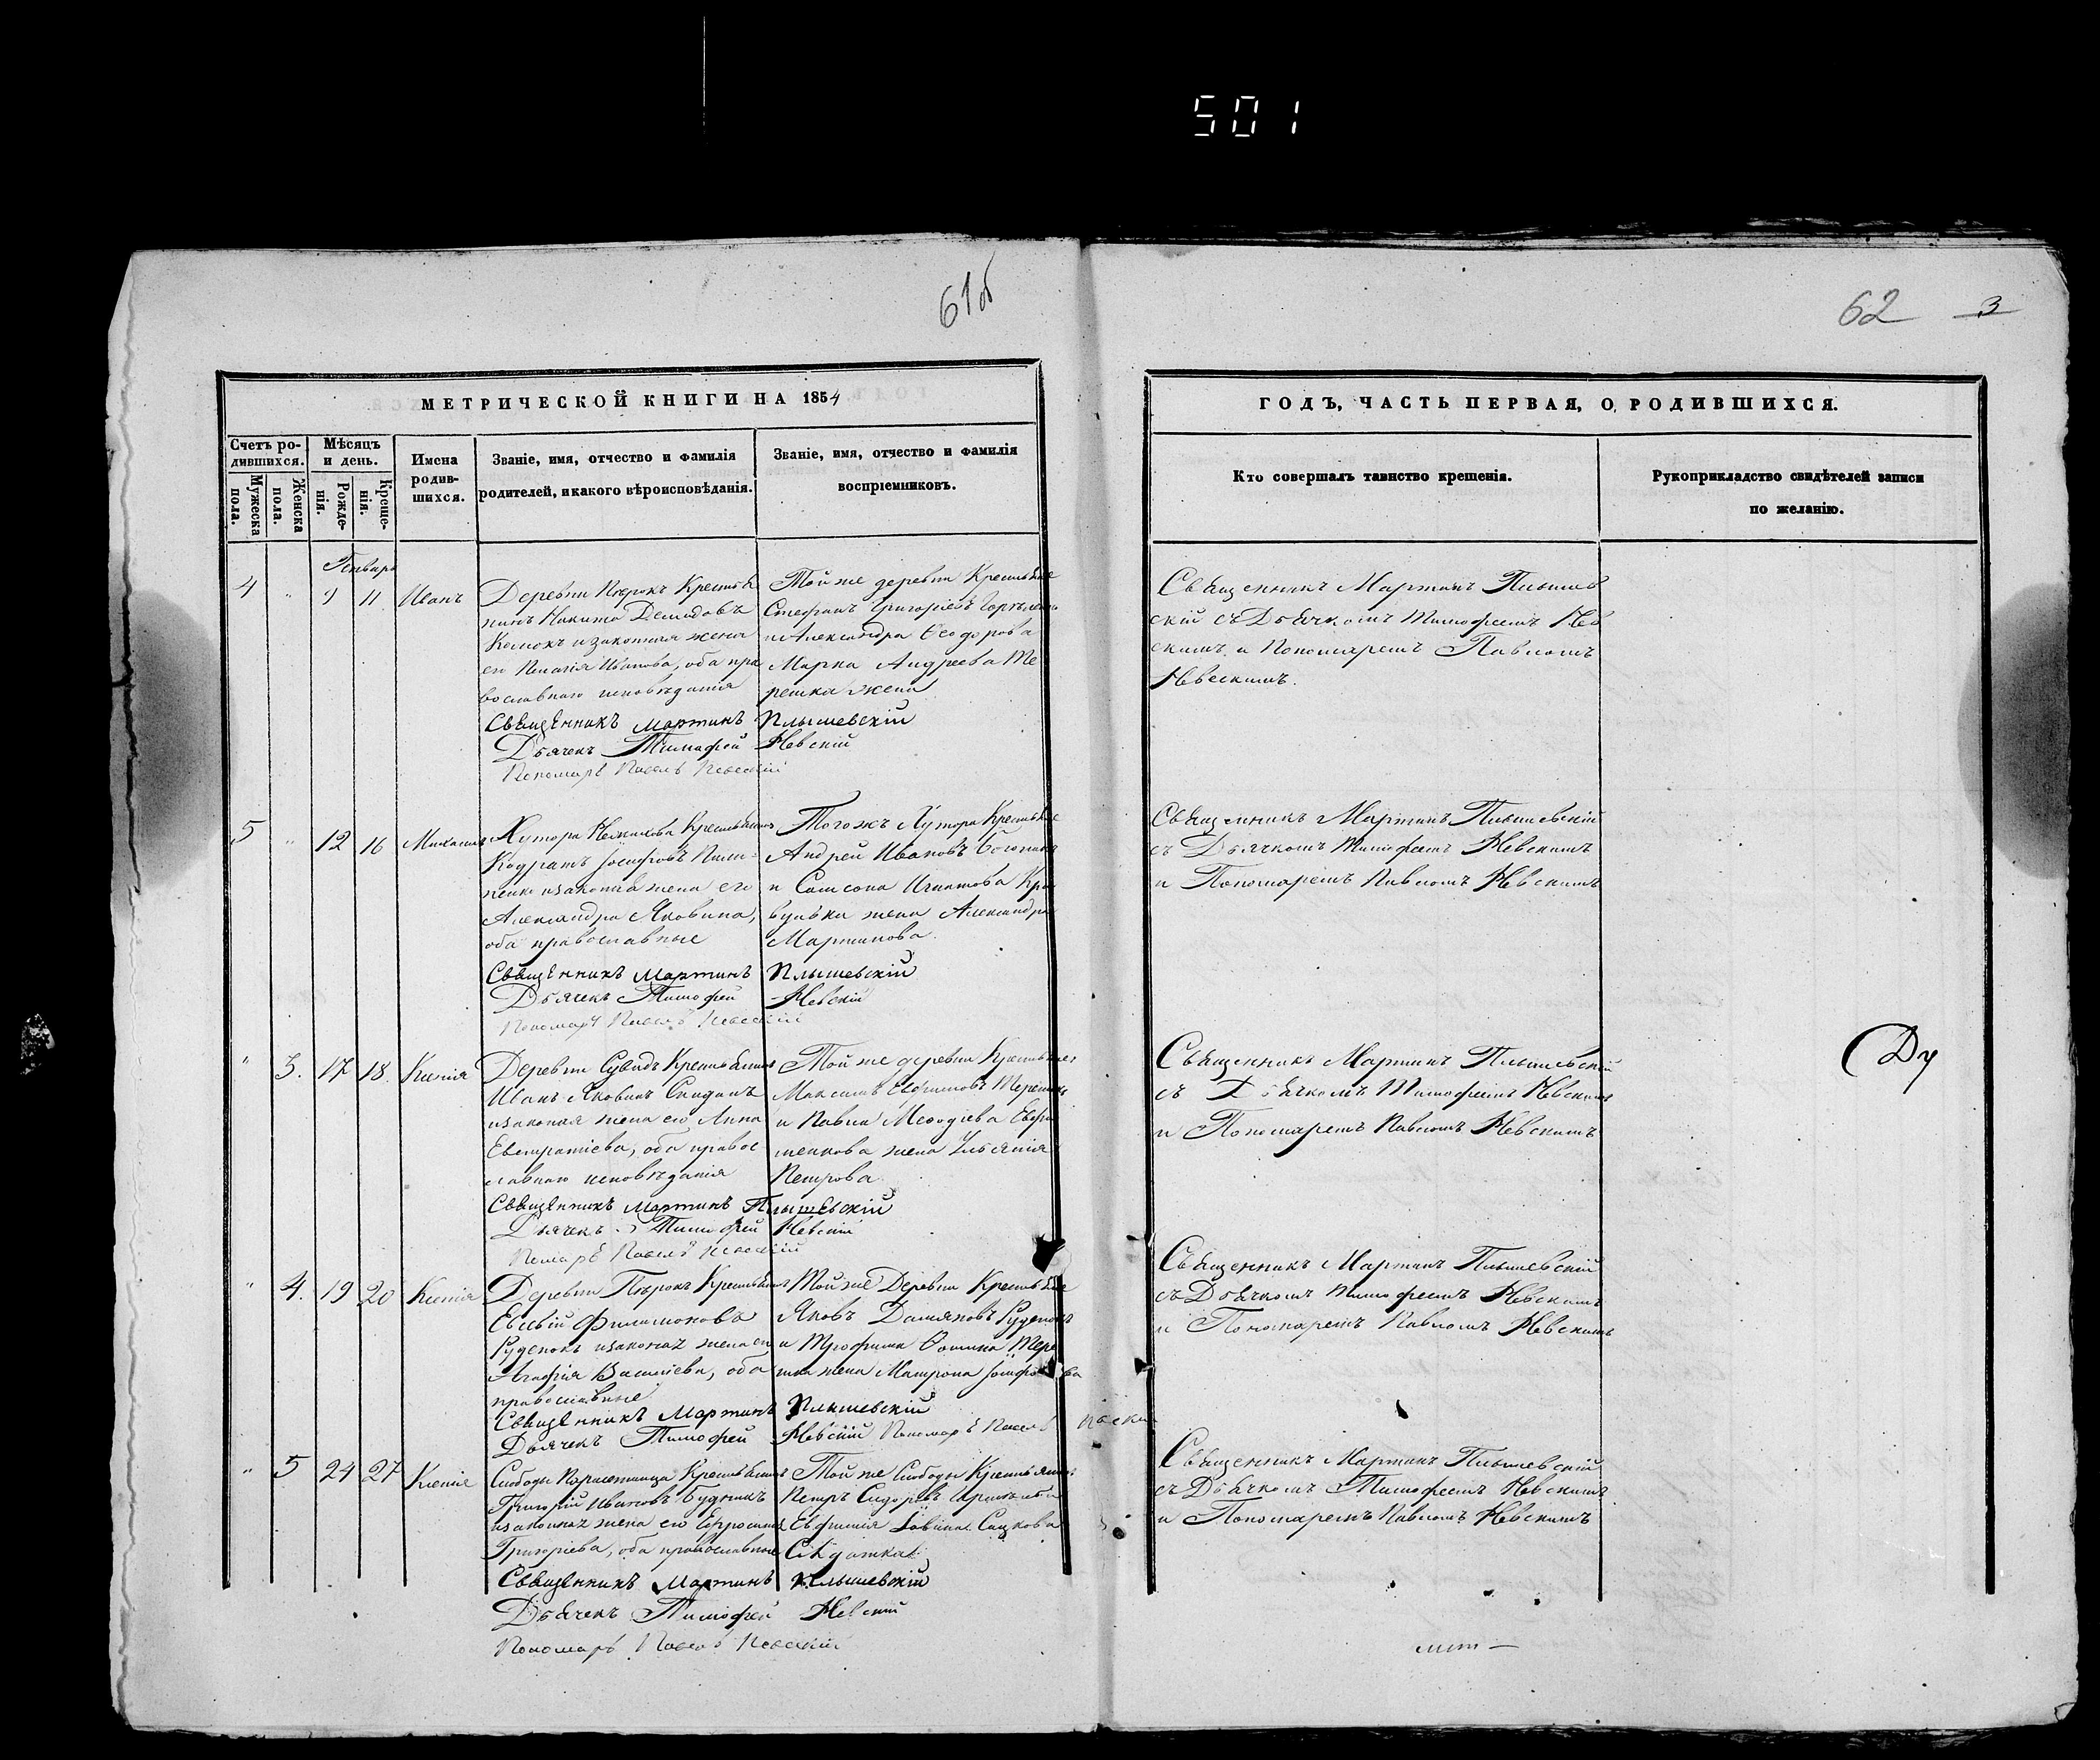 501
61об
62 3
МЕТРИЧЕСКОЙ КНИГИ НА 1854
Счетъ ро-
дившихся.
Мужеска
пола.
Женска
пола.
Мѣсяцъ
и день.
Рожде-
нія.
Креще-
нія.
Имена
родив-
шихся.
Званіе, имя, отчество и фамилія
родителей, и какого вѣроисповѣданія.
Званіе, имя, отчество и фамилія
воспріемниковъ.
Генварь
4 " 9 11 Иванъ
Деревни Крестья
нинъ Никита Демидовъ
и законная жена
его Пелагія Иванова, оба пра
вославнаго исповѣданія
Той же деревни Крестьяне
Стефанъ Григоріевъ
и Александра Ѳеодорова
Марка Андреева Те
решка жена
Священникъ Мартинъ Плышевскій
Дьячекъ Тимофей Невскій
Пономарь Павелъ Невскій
5 " 12 16 Михаилъ
Хутора Крестьянинъ
Кодратъ Іосифовъ Пили-
пенко и законна жена его
Александра Яковина,
оба православные
Тогожъ Хутора Крестьяне
Андрей Ивановъ
и Самсона Игнатова Кра
вульки жена Александра
Мартинова.
Священникъ Мартинъ Плышевскій
Дьячекъ Тимофей Невскій
Пономарь Павелъ Невскій
" 3. 17 18. Ксенія
Деревни Сувидъ Крестьянинъ
Иванъ Яковинъ
и законая жена его Анна
Евстратіева, оба правос
лавнаго исповѣданія
Той же деревни Крестьяне
Максимъ Евфимовъ
и Павла Меѳодіева
жена Ульянія
Петрова
Священникъ Мартинъ Плышевскій
Дьячекъ Тимофей Невскій
Павелъ Невскій
" 4. 19 20 Ксенія
Деревни Крестьянинъ
Евсевій Филимоновъ
Руденокъ и законая жена его
Агафія Василіева, оба
православные
Той же Деревни Крестьяне
Яковъ Даміяновъ Руденокъ
и Трофима Ѳомина Тере
шка жена Матрона Іосифова
Священникъ Мартинъ Плышевскій
Дьячекъ Тимофей Невскій Пономарь Павелъ
" 5 24 27 Ксенія
Слободы Крестьянинъ
Григорій Ивановъ Будникъ
и законная жена его
Григоріева, оба православные
Той же Слободы Крестьянинъ
Петръ Сидоровъ
Евфимія
Священникъ Мартинъ Плышевскій
Дьячекъ Тимофей Невскій
Пономарь Павелъ Невскій
ГОДЪ, ЧАСТЬ ПЕРВАЯ, О РОДИВШИХСЯ.
Кто совершалъ таинство крещенія.
Рукоприкладство свидѣтелей записи
по желанію.
Священникъ Мартинъ Плышев
скій съ Дьячкомъ Тимофеемъ Нев
скимъ и Пономаремъ Павломъ
Невскимъ.
Священникъ Мартинъ Плышевскій
съ Дьячкомъ Тимофеемъ Невскимъ
и Пономаремъ Павломъ Невскимъ
Священникъ Мартинъ Плышевскій
съ Дьячкомъ Тимофеемъ Невскимъ
и Пономаремъ Павломъ Невскимъ
Священникъ Мартинъ Плышевскій
съ Дьячкомъ Тимофеемъ Невскимъ
и Пономаремъ Павломъ Невскимъ
Священникъ Мартинъ Плышевскій
съ Дьячкомъ Тимофеемъ Невскимъ
и Пономаремъ Павломъ Невскимъ
Ду